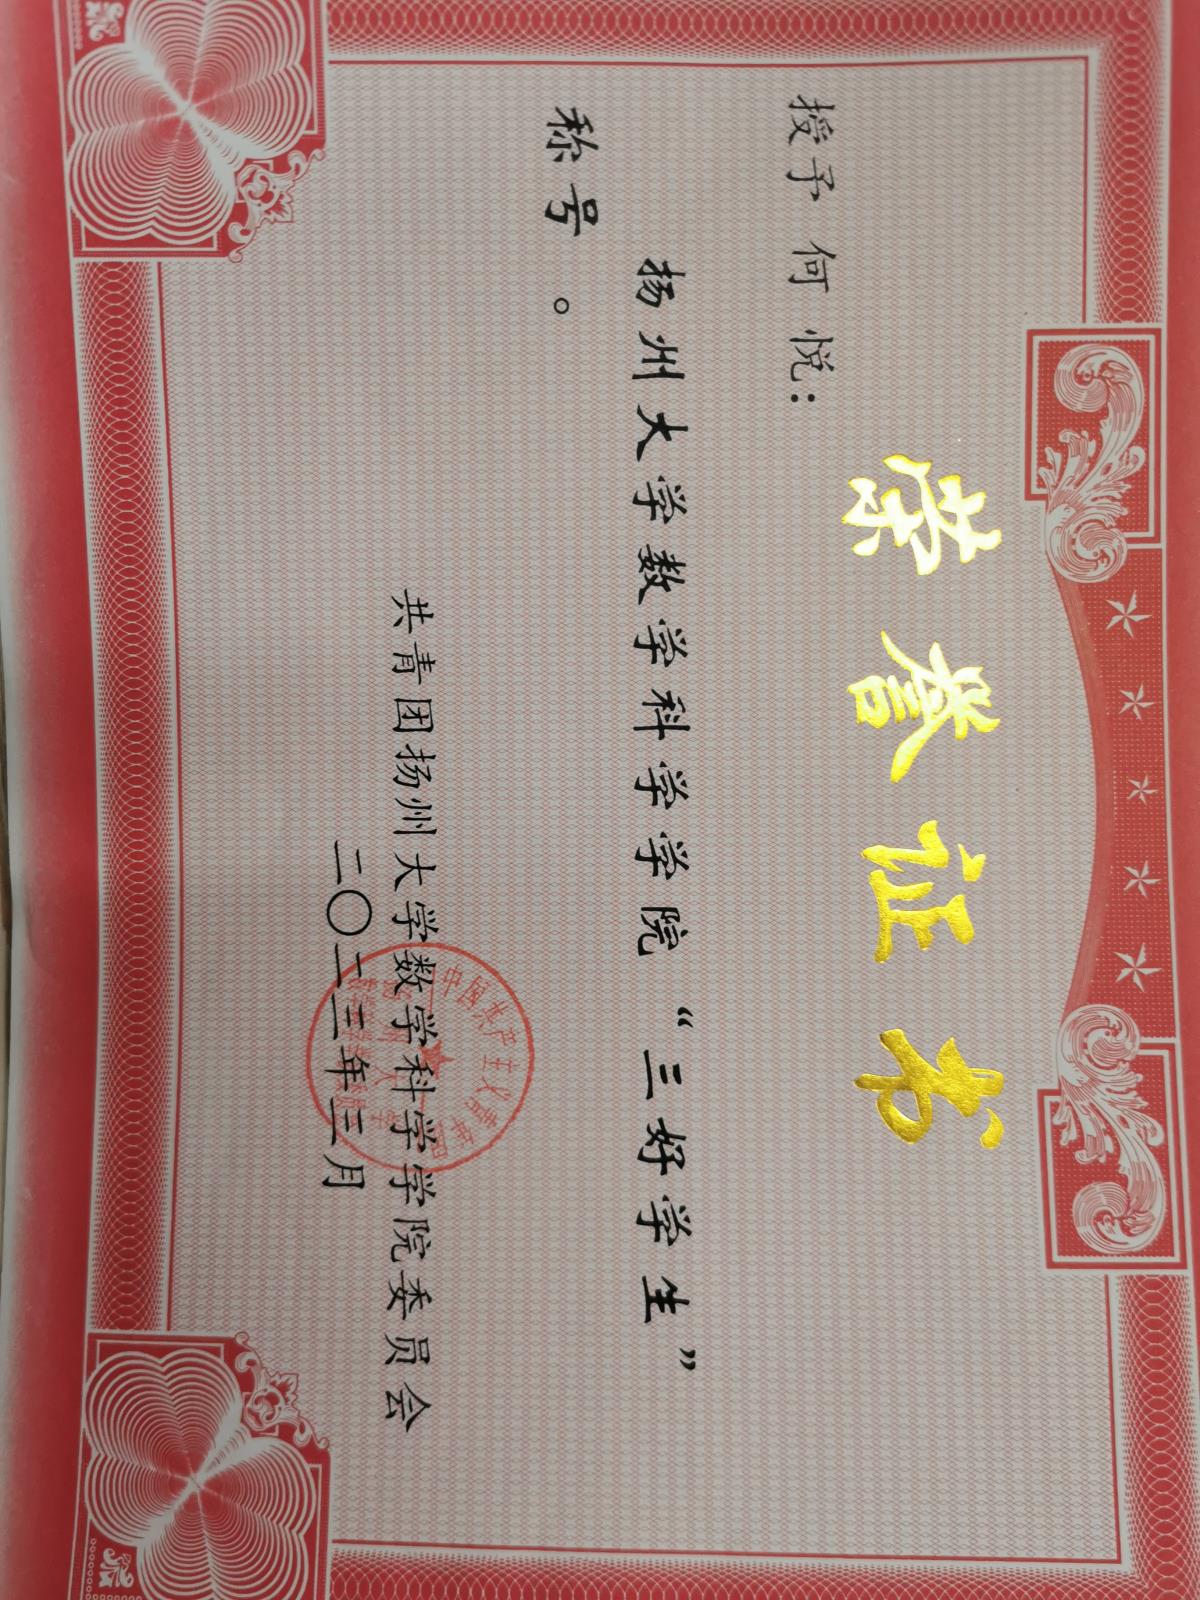 荣誉证书
授予何悦：
扬州大学数学科学学院“三好学生”
称号。
共青团扬州大学数学科学学院委员会
二〇二三年三月
中国共产主义青年团